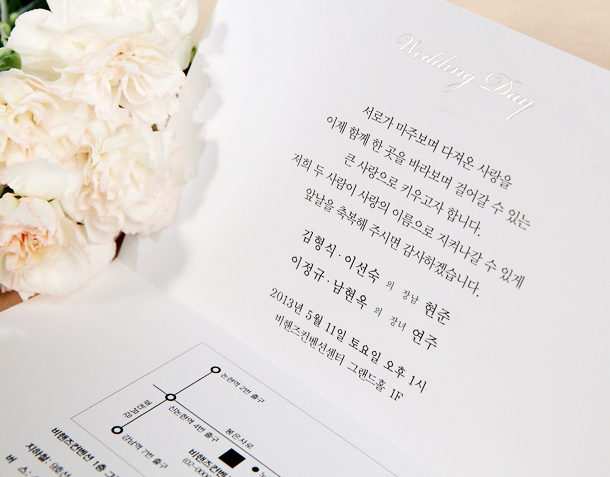 Wedding Day
서로가 마주보며 다져온 사랑을
이제 함께 한 곳을 바라보며 걸어갈 수 있는
큰 사랑으로 키우고자 합니다.
저희 두 사람이 사랑의 이름으로 지켜나갈 수 있게
앞날을 축복해 주시면 감사하겠습니다.
김형식 · 이선숙 의 장남 현준
이정규 · 남현옥 의 장녀 연주
2013년 5월 11일 토요일 오후 1시
비핸즈컨벤션센터 그랜드홀 1F
논현역 2번 출구
강남대로
신논현역 4번 출구
봉은사로
강남역 7번 출구
비핸즈컨벤
(02-000
논
비핸즈컨벤션 1층 그
지하철: 9호선
버 스 :